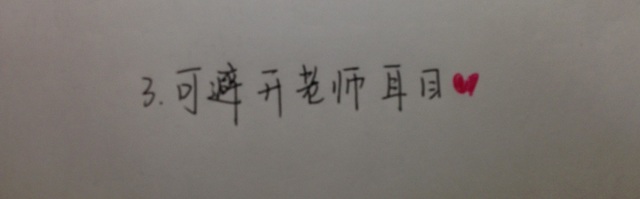 3.可避开老师耳目